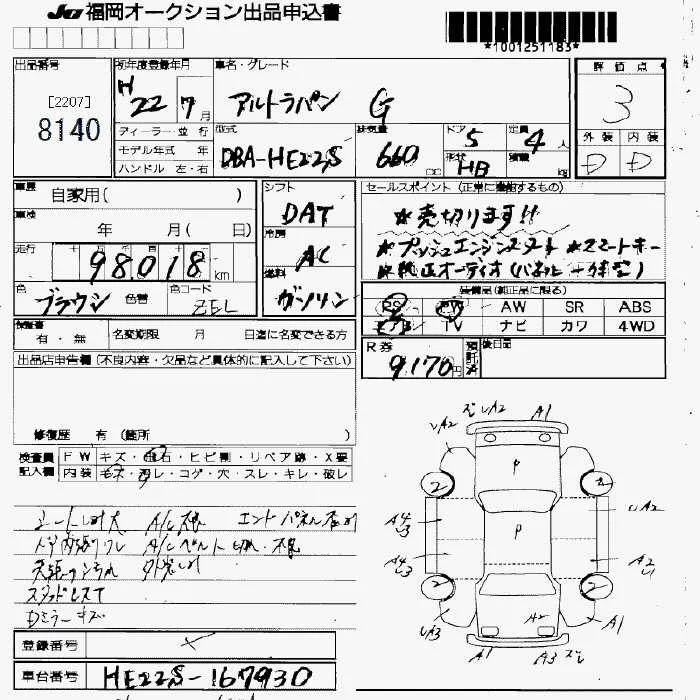 JU 福岡オークション出品申込書
*1001251183*
出品番号
[2207]
8140
初年度登録年月
H 22 7 月
車名・グレード
アルトラパン G
評価点
3
外装 内装
D D
ディーラー・並行
モデル年式 年
ハンドル 左・右
型式
DBA-HE22S
排気量
660 cc
ドア 5
形状 HB
定員 4 人
積載 kg
車歴 自家用( )
車検 年 月( 日)
走行 98,018 km
色 ブラウン 色替
色コード ZEL
シフト DAT
冷房 AC
燃料 ガソリン
セールスポイント (正常に機能するもの)
★売切ります!!
★プッシュエンジンスタート ★スマートキー
★純正オーディオ(パネル一体型)
装備品(純正品に限る)
PS PW AW SR ABS
エアB TV ナビ カワ 4WD
R券 9,170円
預託済
後日品
有・無 名変期限 月 日迄に名変できる方
出品店申告欄 (不良内容・欠品など具体的に記入して下さい)
修復歴 有 (箇所 )
検査員 FW キズ・飛石・ヒビ割・リペア跡・X要
記入欄 内装 キズ・汚レ・コゲ・穴・スレ・キレ・破レ
A/C
A/Cベルト切れ
スタッドレス
Dミラーキズ
登録番号
車台番号 HE22S-167930
A2 A1
P
2 2
A4 A2
P
A4 A2
2 2
A2
A3 A1
A1 A3